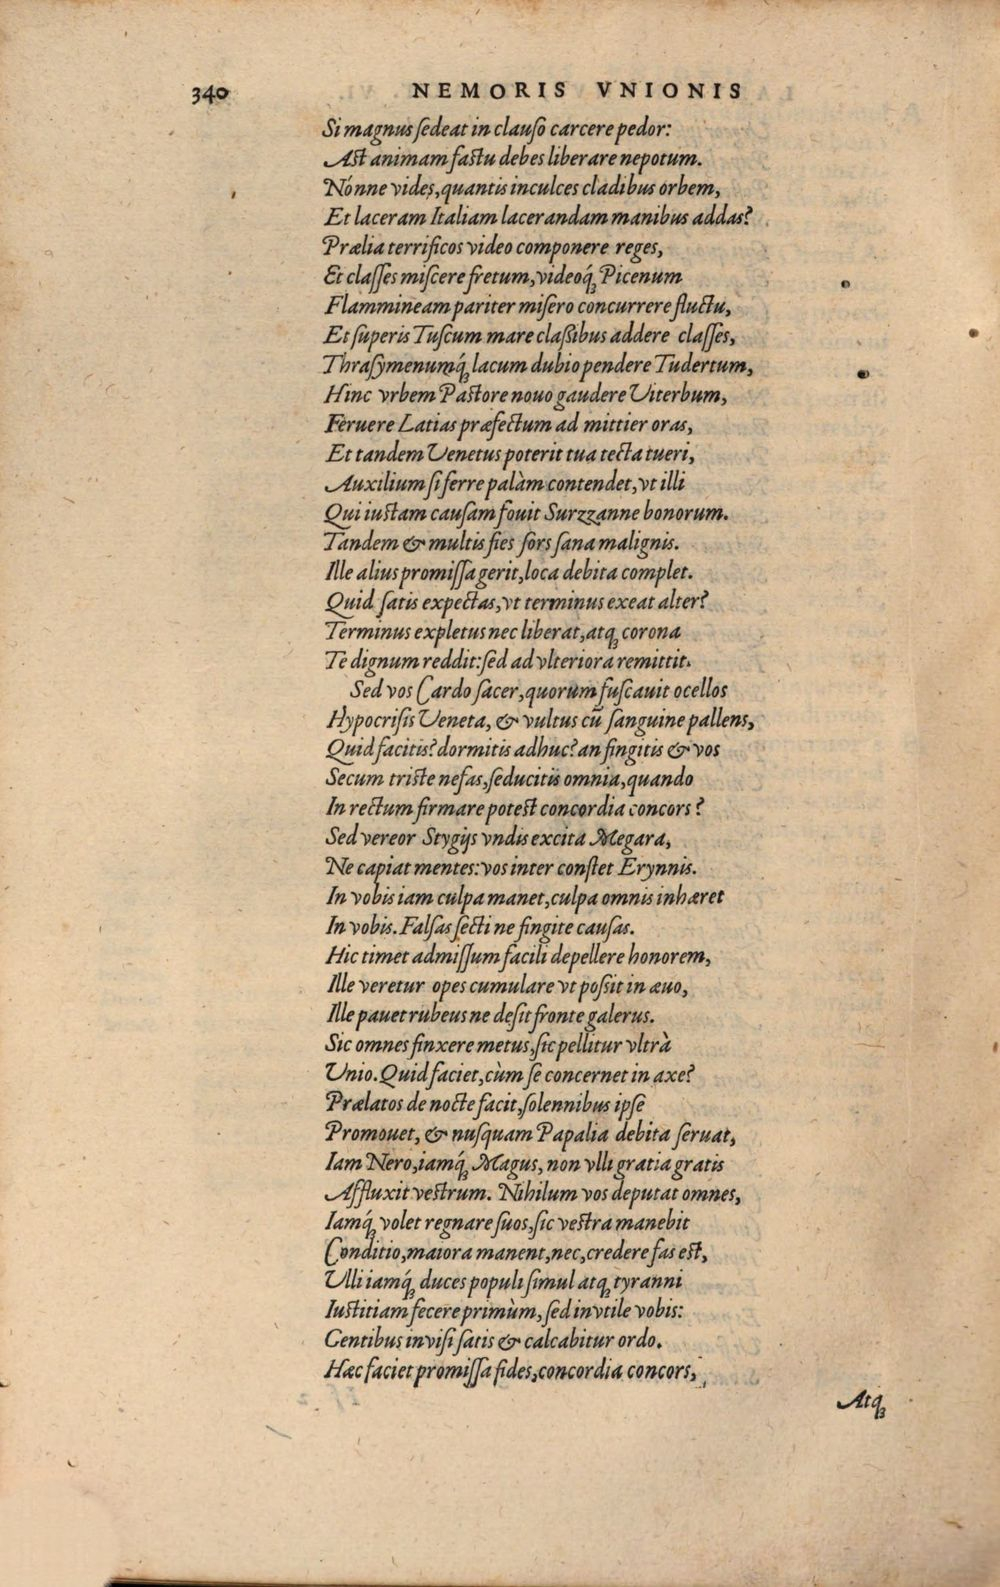 340 NEMORIS VNIONIS
Si magnus ſedeat in clauſo carcere pedor:
Aſt animam faſtu debes liberare nepotum.
Nónne vides, quantis inculces cladibus orbem,
Et laceram Italiam lacerandam manibus addas?
Prælia terrificos video componere reges,
Et claſſes miſcere fretum, videoq́ꝫ Picenum
Flammineam pariter miſero concurrere fluctu,
Et ſuperis Tuſcum mare claßibus addere claſſes,
Thraſymenumq́ꝫ lacum dubio pendere Tudertum,
Hinc vrbem Paſtore nouo gaudere Viterbum,
Feruere Latias præfectum ad mittier oras,
Et tandem Venetus poterit tua tecta tueri,
Auxilium ſi ferre palàm contendet, vt illi
Qui iuſtam cauſam fouit Surzzanne bonorum.
Tandem & multis fies ſors ſana malignis.
Ille alius promiſſa gerit, loca debita complet.
Quid ſatis expectas, vt terminus exeat alter?
Terminus expletus nec liberat, atqꝫ corona
Te dignum reddit: ſed ad vlteriora remittit.
Sed vos Cardo ſacer, quorum fuſcauit ocellos
Hypocriſis Veneta, & vultus cū ſanguine pallens,
Quid facitis? dormitis adhuc? an fingitis & vos
Secum triſte nefas, ſeducitis omnia, quando
In rectum firmare poteſt concordia concors?
Sed vereor Stygijs vndis excita Megara,
Ne capiat mentes: vos inter conſtet Erynnis.
In vobis iam culpa manet, culpa omnis inhæret
In vobis. Falſas ſecti ne fingite cauſas.
Hic timet admiſſum facili depellere honorem,
Ille veretur opes cumulare vt poßit in æuo,
Ille pauet rubeus ne deſit fronte galerus.
Sic omnes finxere metus, ſic pellitur vltrà
Vnio. Quid faciet, cùm ſe concernet in axe?
Prælatos de nocte facit, ſolennibus ipſe
Promouet, & nuſquam Papalia debita ſeruat,
Iam Nero, iamq́ꝫ Magus, non vlli gratia gratis
Affluxit veſtrum. Nihilum vos deputat omnes,
Iamq́ꝫ volet regnare ſuos, ſic veſtra manebit
Conditio, maiora manent, nec, credere fas eſt,
Vlli iamq́ꝫ duces populi ſimul atqꝫ tyranni
Iuſtitiam fecere primùm, ſed inutile vobis:
Gentibus inuiſi ſatis & calcabitur ordo.
Hæc faciet promiſſa fides, concordia concors,
Atqꝫ